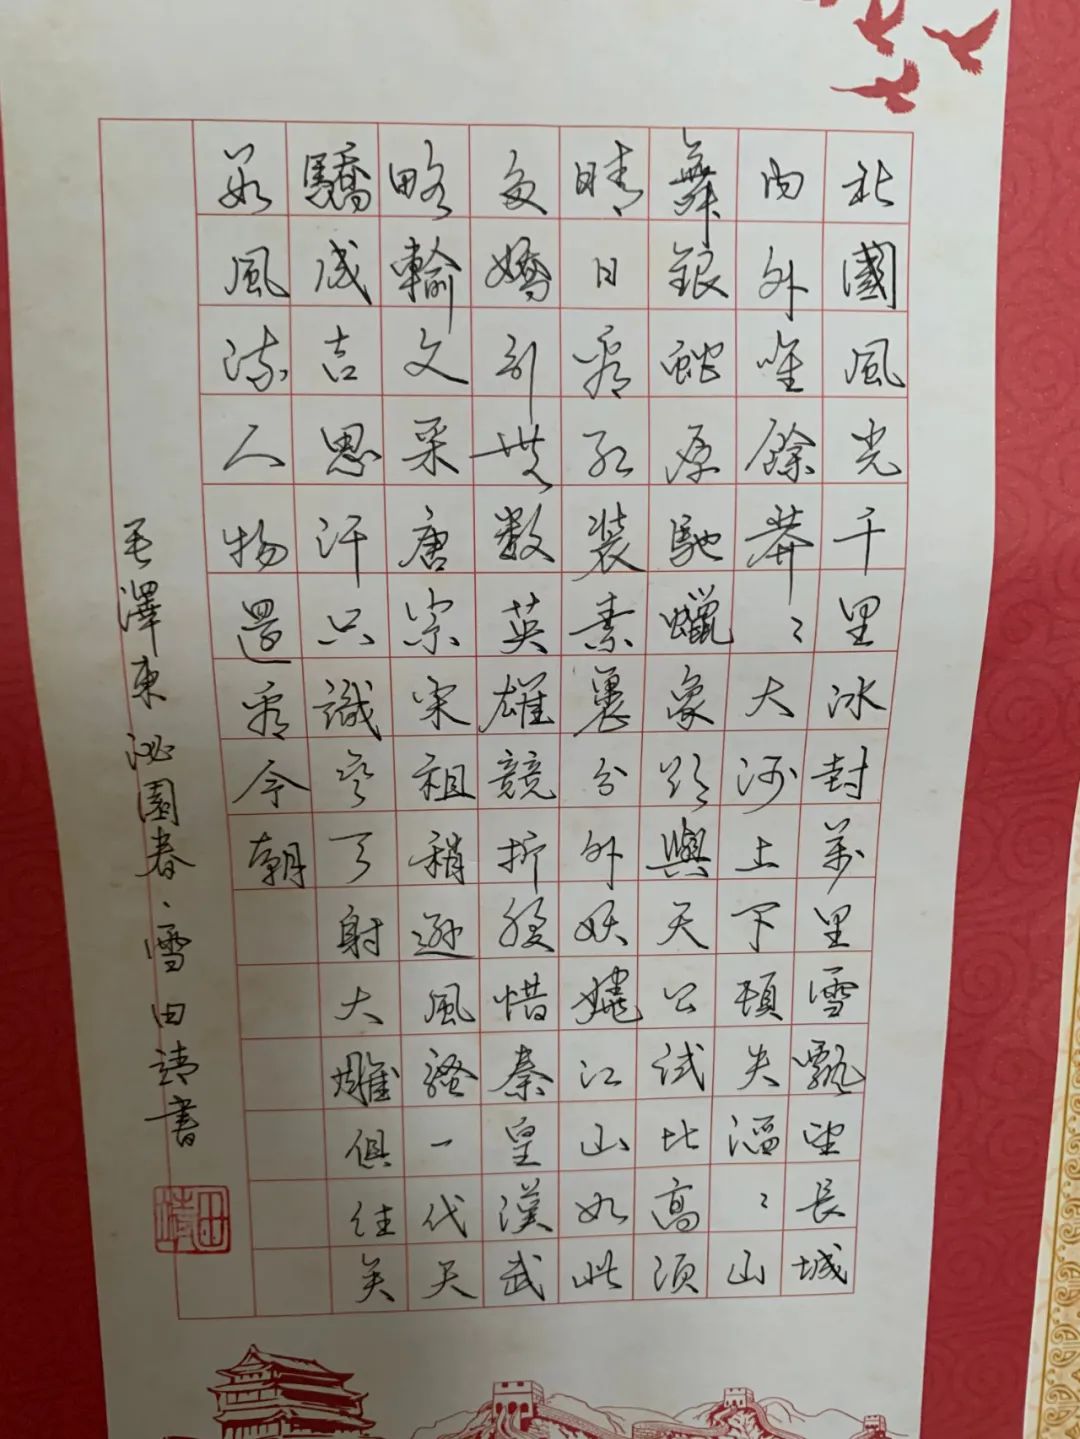 北國風光千里冰封萬里雪飄望長城
内外唯餘莽〻大河上下頓失滔〻山
舞銀蛇原馳蠟象欲與天公試比高須
晴日看紅裝素裹分外妖嬈江山如此
多嬌引無数英雄競折腰惜秦皇漢武
略輸文采唐宗宋祖稍遜風騷一代天
驕成吉思汗只識彎弓射大雕俱往矣
数風流人物還看今朝
毛澤東沁園春·雪 田靖書
田靖